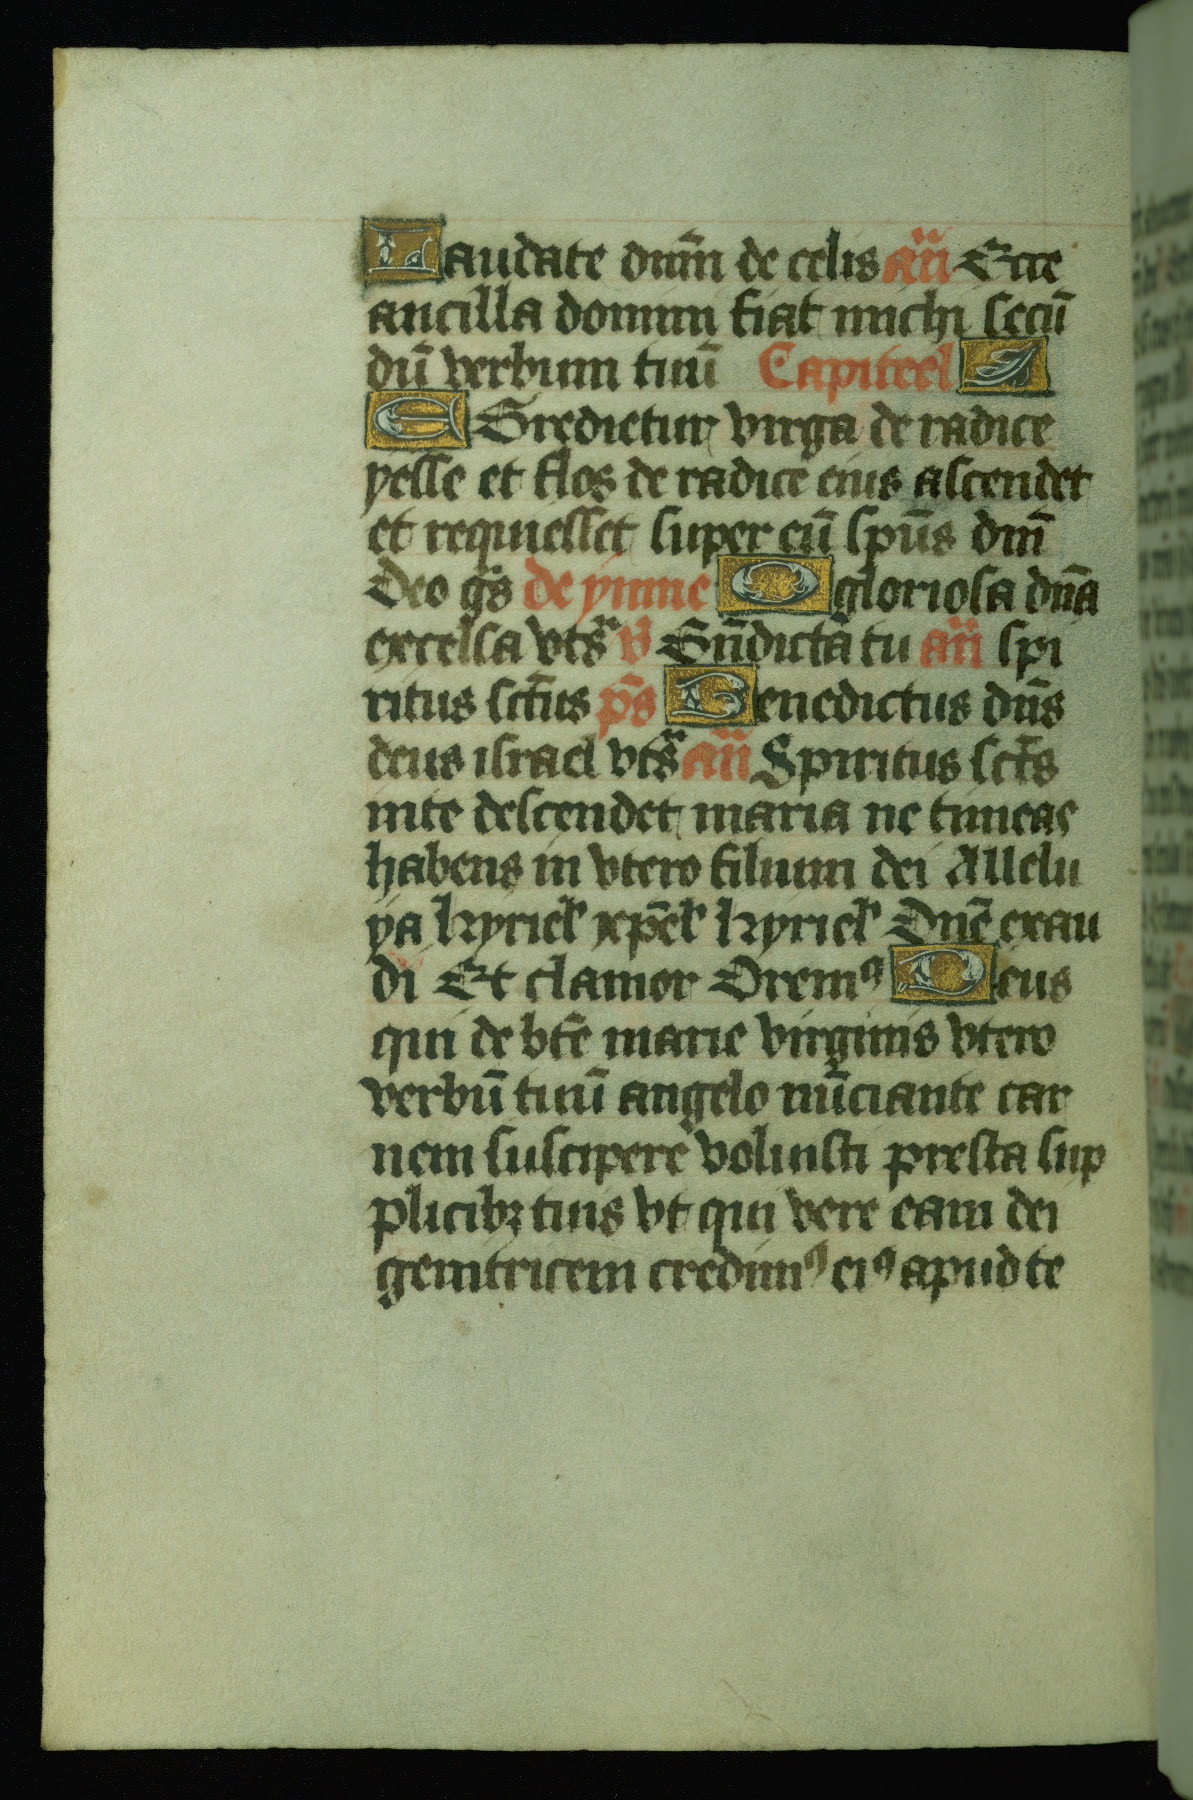 Laudate dnm̄ de celis an̄ Ecce
ancilla domini fiat michi secū
dū verbum tuū Capiteel
EGredietur virga de radice
yesse et flos de radice eius ascendet
et requiesset super eū spūs dm̄
Deo gr̄s de ymne O gloriosa dn̄a
excelsa vts̄ v̄ Bn̄dicta tu an̄ spi
ritus sctūs ps̄ Benedictus dn̄s
deus israel vts̄ an̄ Spiritus sct̄s
inte descendet maria ne timeas
habens in vtero filium dei Allelu
ya kyriel xp̄el kyriel Dn̄e exau
di Et clamor Oremꝰ Deus
qui de bt̄e marie virginis vtero
verbū tuū angelo nūciante car
nem suscipere voluisti presta sup
plicibꝫ tuis vt qui vere eam dei
genitricem credimꝰ eiꝰ apud te